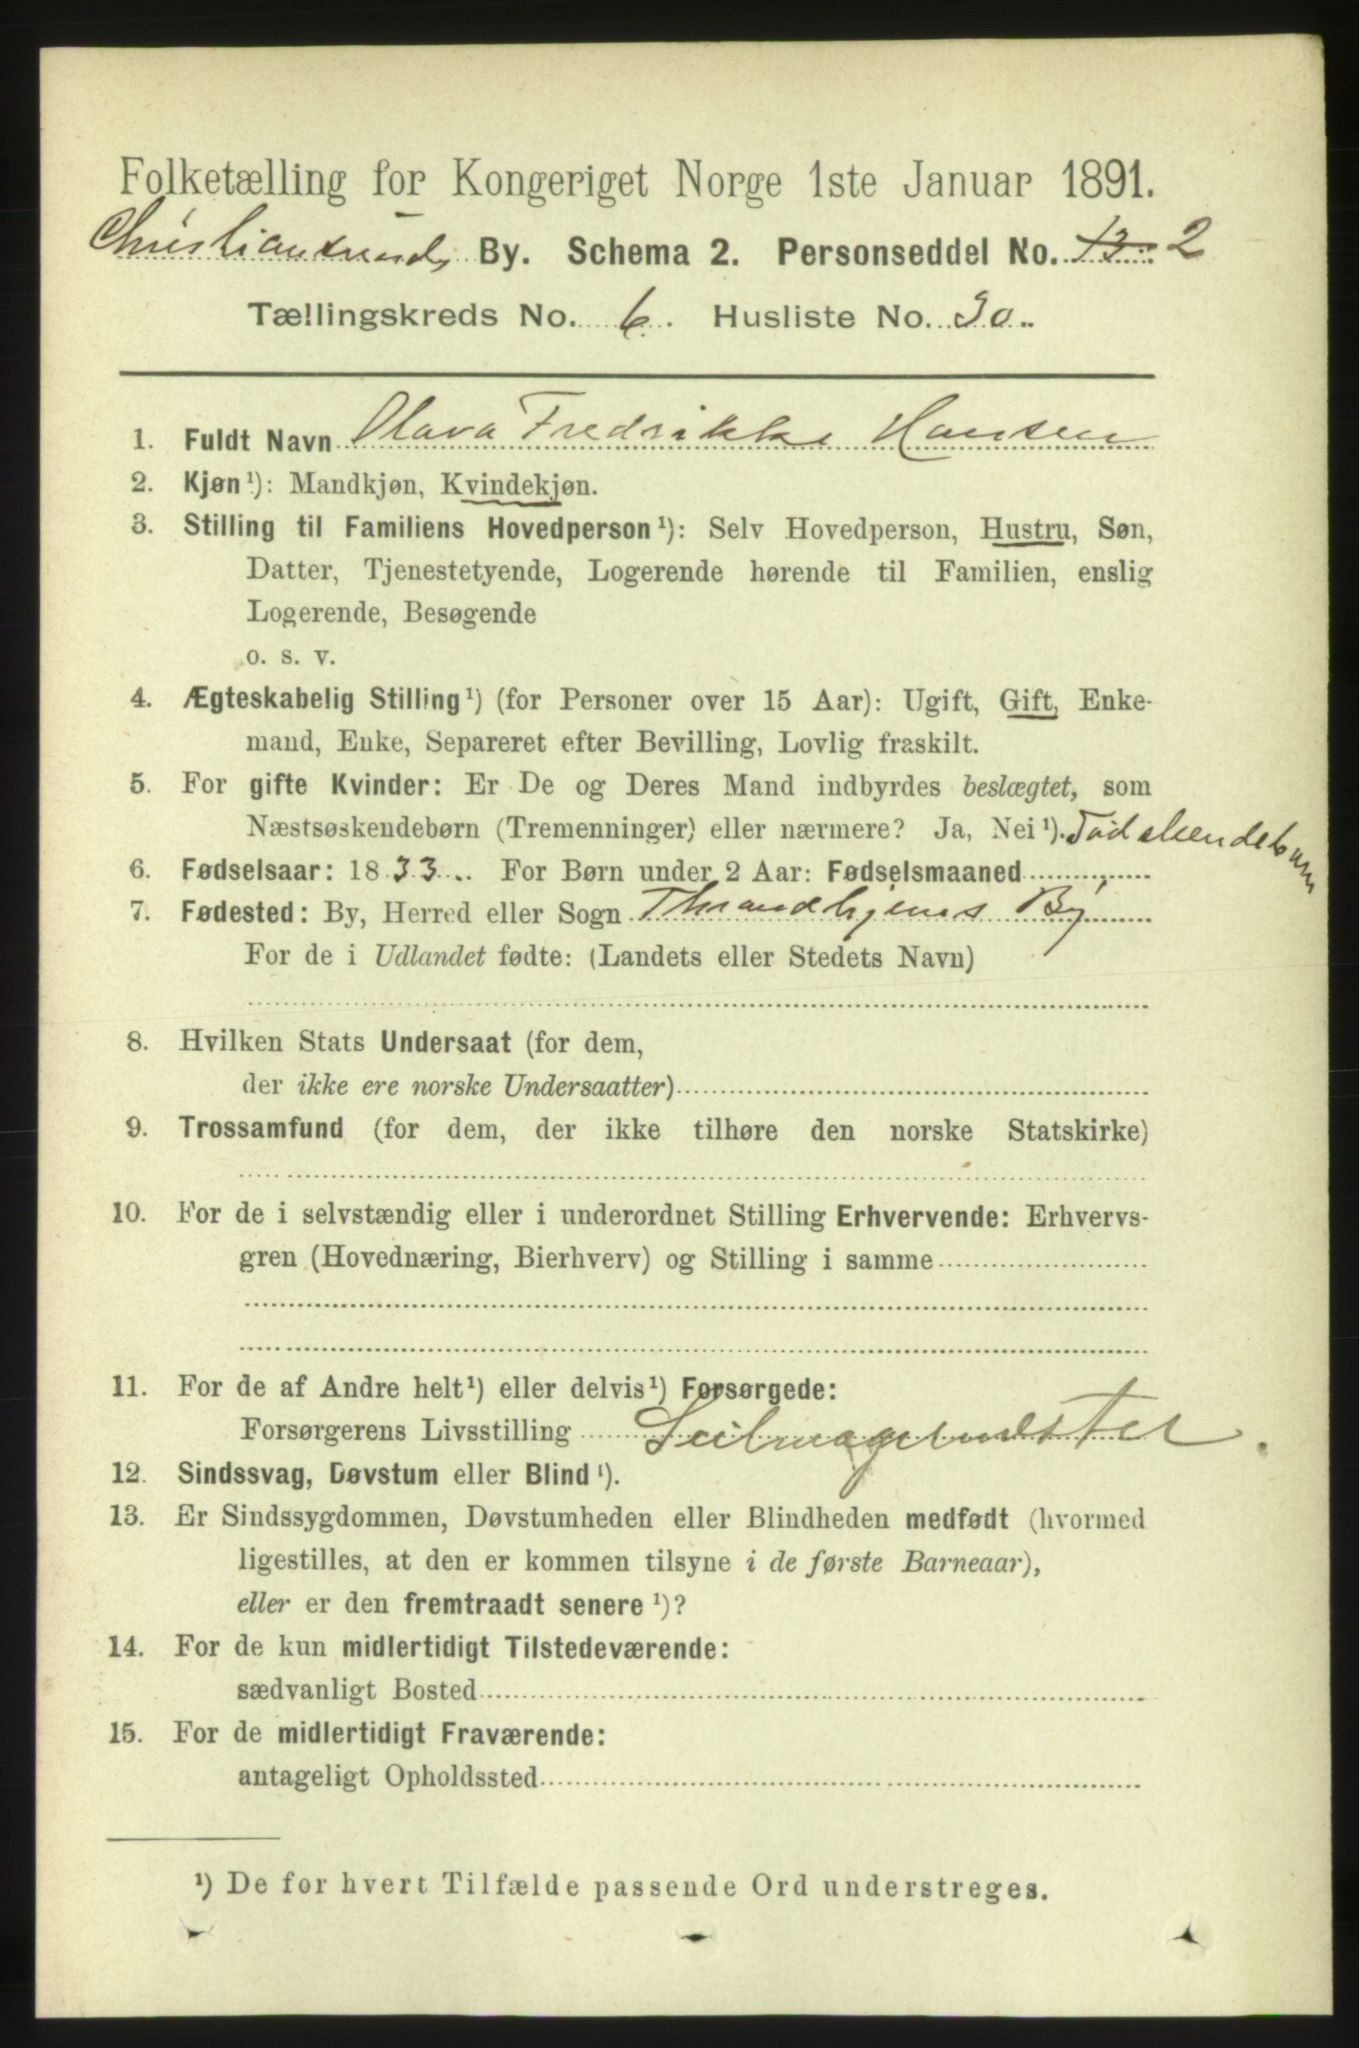 Folketælling for Kongeriget Norge 1ste Januar 1891.
Christiansunds By. Schema 2. Personseddel No. 13 2
Tællingskreds No. 6. Husliste No. 30.
1. Fuldt Navn Olava Fredrikke Hansen
2. Kjøn¹): Mandkjøn, Kvindekjøn.
3. Stilling til Familiens Hovedperson¹): Selv Hovedperson, Hustru, Søn,
Datter, Tjenestetyende, Logerende hørende til Familien, enslig
Logerende, Besøgende
o. s. v.
4. Ægteskabelig Stilling¹) (for Personer over 15 Aar): Ugift, Gift, Enke-
mand, Enke, Separeret efter Bevilling, Lovlig fraskilt.
5. For gifte Kvinder: Er De og Deres Mand indbyrdes beslægtet, som
Næstsøskendebørn (Tremenninger) eller nærmere? Ja, Nei¹).
6. Fødselsaar: 1833. For Børn under 2 Aar: Fødselsmaaned
7. Fødested: By, Herred eller Sogn Thrandhjems By
For de i Udlandet fødte: (Landets eller Stedets Navn)
8. Hvilken Stats Undersaat (for dem,
der ikke ere norske Undersaatter)
9. Trossamfund (for dem, der ikke tilhøre den norske Statskirke)
10. For de i selvstændig eller i underordnet Stilling Erhvervende: Erhvervs-
gren (Hovednæring, Bierhverv) og Stilling i samme
11. For de af Andre helt¹) eller delvis¹) Forsørgede:
Forsørgerens Livsstilling Seilmagermester.
12. Sindssvag, Døvstum eller Blind¹).
13. Er Sindssygdommen, Døvstumheden eller Blindheden medfødt (hvormed
ligestilles, at den er kommen tilsyne i de første Barneaar),
eller er den fremtraadt senere¹)?
14. For de kun midlertidigt Tilstedeværende:
sædvanligt Bosted
15. For de midlertidigt Fraværende:
antageligt Opholdssted
¹) De for hvert Tilfælde passende Ord understreges.